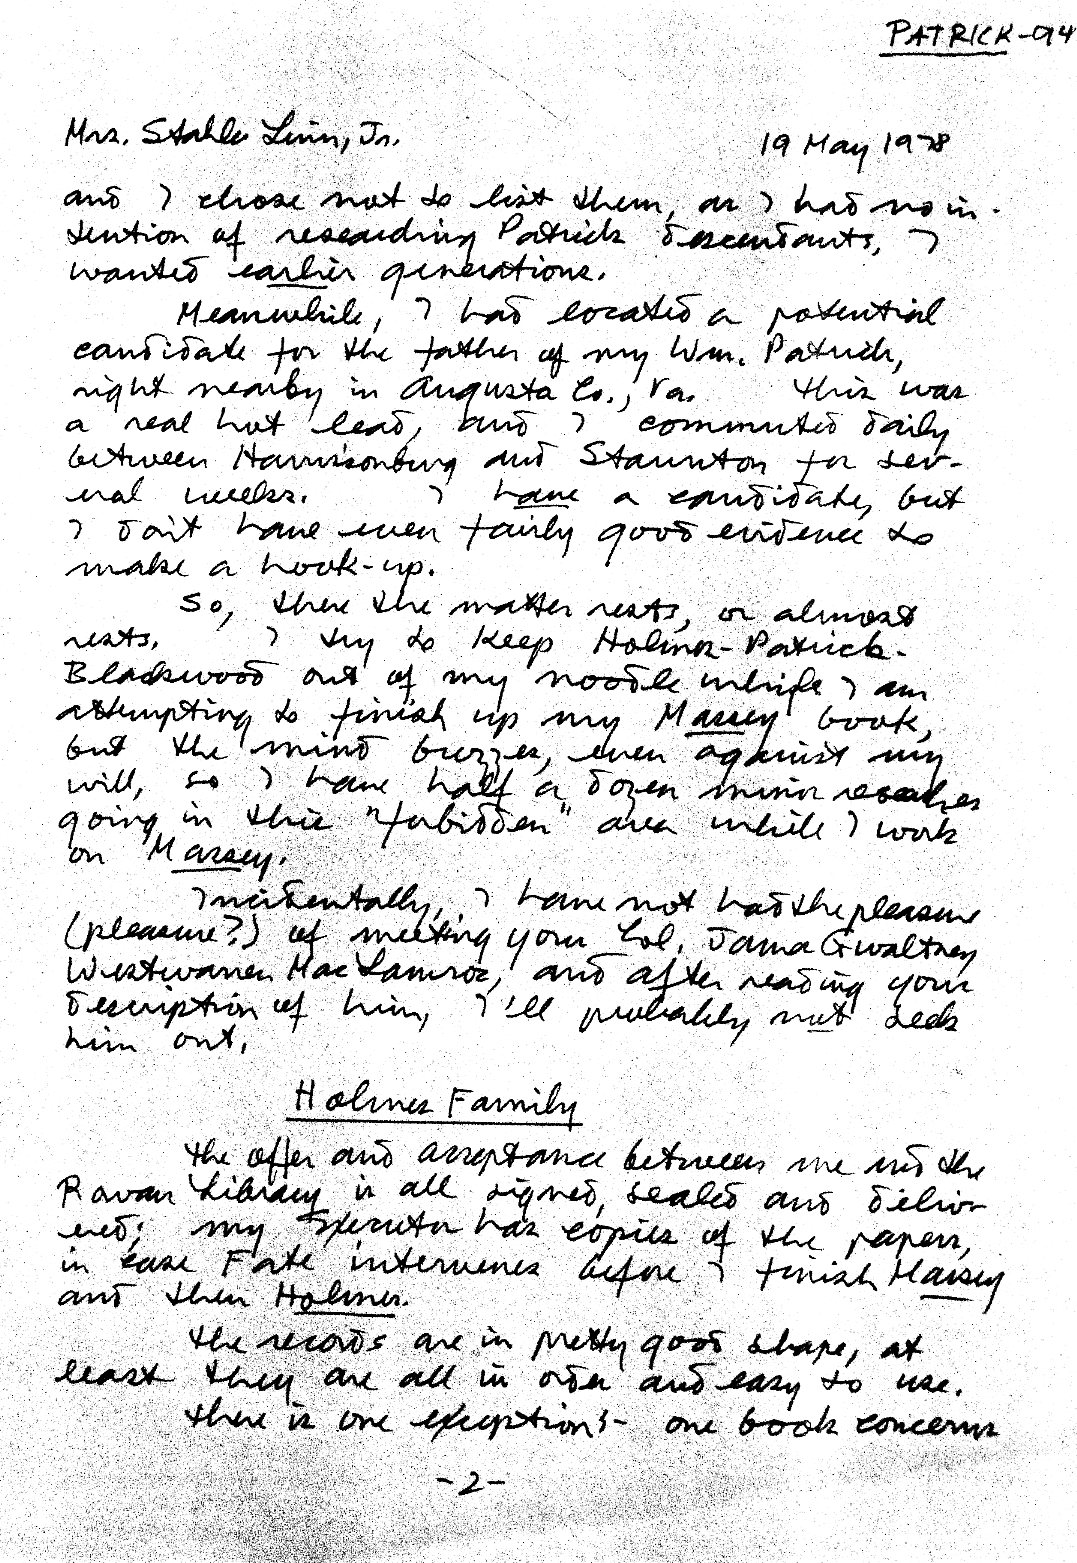 PATRICK-94
Mrs. Stahle Linn, Jr. 19 May 1978
and I chose not to list them, as I had no in-
tention of researching Patrick descendants, I
wanted earlier generations.
Meanwhile, I had located a potential
candidate for the father of my Wm. Patrick,
right nearby in Augusta Co., Va. This was
a real hot lead, and I commuted daily
between Harrisonburg and Staunton for sev-
eral weeks. I have a candidate, but
I don't have even fairly good evidence to
make a hook-up.
So, there the matter rests, or almost
rests. I try to keep Holmes-Patrick-
Blackwood out of my noodle while I am
attempting to finish up my Massey book,
but the mind buzzes, even against my
will, so I have half a dozen minor researches
going in this "forbidden" area while I work
on Massey.
Incidentally, I have not had the pleasure
(pleasure?) of meeting your Col. James Gwaltney
Westwarren MacLamroc, and after reading your
description of him, I'll probably not seek
him out.
Holmes Family
The offer and acceptance between me and the
Rowan Library is all signed, sealed and deliv-
ered; my Executor has copies of the papers,
in case Fate intervenes before I finish Massey
and then Holmes.
The records are in pretty good shape, at
least they are all in order and easy to use.
There is one exception:- one book concerns
-2-